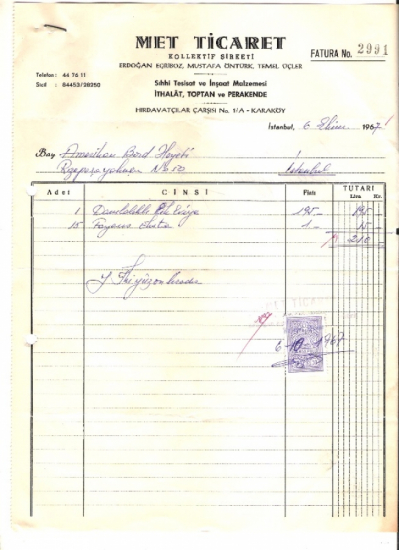 MET TİCARET
KOLLEKTİF ŞİRKETİ
ERDOĞAN EĞRİBOZ, MUSTAFA ÖNTÜRK, TEMEL ÜÇLER
FATURA No. 2991
Telefon : 44 76 11
Sicil : 84453/28250
Sıhhi Tesisat ve İnşaat Malzemesi
İTHALÂT, TOPTAN ve PERAKENDE
HIRDAVATÇILAR ÇARŞISI No. 1/A - KARAKÖY
İstanbul, 6 Ekim 1967
Bay Amerikan Bord Heyeti
No 10 İstanbul
Adet CİNSİ Fiatı TUTARI
Lira Kr.
1 195 195
15 Fayans 1 15
210
MET TİCARET
6-10-1967